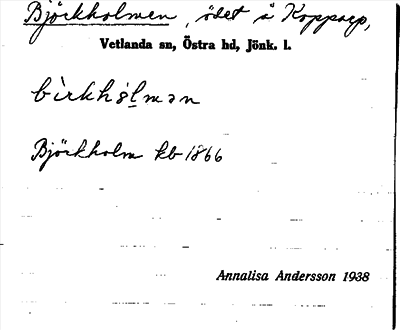 Björkholmen, ödet å Kopparp,
Vetlanda sn, Östra hd, Jönk. l.
bìrkhòlmən
Björkholm kb 1866
Annalisa Andersson 1938